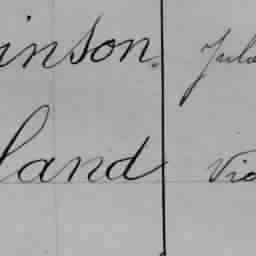 inson. Jula
land Vio